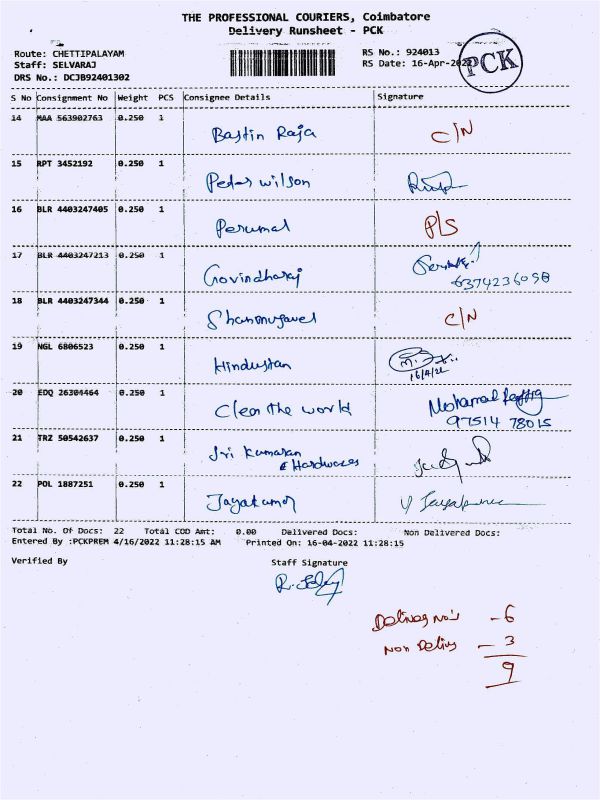 THE PROFESSIONAL COURIERS, Coimbatore
Delivery Runsheet - PCK
Route: CHETTIPALAYAM
Staff: SELVARAJ
DRS No.: DCJB92401302
RS No.: 924013
RS Date: 16-Apr-2022
PCK
S No Consignment No Weight PCS Consignee Details Signature
14 MAA 563902763 0.250 1 Bastin Raja C/N
15 RPT 3452192 0.250 1 Peter Wilson
16 BLR 4403247405 0.250 1 Perumal P/S
17 BLR 4403247213 0.250 1 Govindharaj
6374236098
18 BLR 4403247344 0.250 1 Shanmugavel C/N
19 NGL 6806523 0.250 1 Hindustan
16/4/22
20 EDQ 26304464 0.250 1 Clean The world Mohamed
97514 78015
21 TRZ 50542637 0.250 1 Sri Kumaran
& Hardwares
22 POL 1887251 0.250 1 Jayakumar
Total No. Of Docs: 22 Total COD Amt: 0.00 Delivered Docs: Non Delivered Docs:
Entered By :PCKPREM 4/16/2022 11:28:15 AM Printed On: 16-04-2022 11:28:15
Verified By Staff Signature
- 6
Non Delivy - 3
9